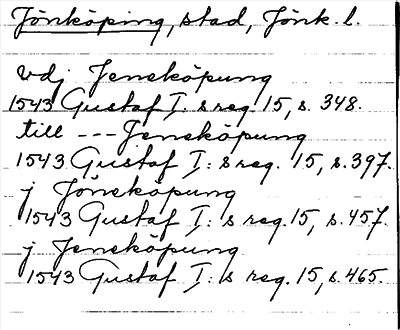 Jönköping, stad, Jönk. l.
vdj Jeneköpung
1543 Gustaf I: s reg 15, s. 348.
till --- Jeneköpung
1543 Gustaf I: s reg. 15, s. 397.
j Jöneköpung
1543 Gustaf I: s reg. 15, s. 457.
j Jeneköpung
1543 Gustaf I: s reg. 15, s. 465.